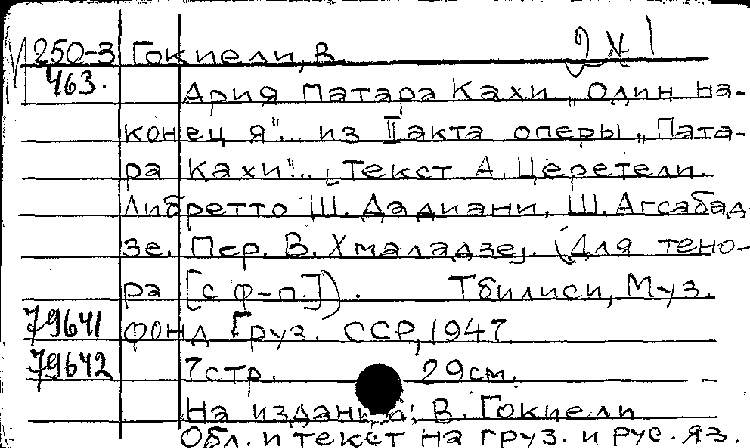 250-3 Гокиели, В.
463.
Ария Патара Кахи „Один на-
конец я"... из II акта оперы „Пата-
ра Кахи"... [Текст А. Церетели.
Либретто Ш. Дадиани, Ш. Агсабад
зе. Пер. В. Хмаладзе]. (Для тено-
ра [с ф-п.]). Тбилиси, Муз.
79641 фонд Груз. ССР, 1947
79642 7 стр. 29 см.
На издании: В. Гокиели
Обл. и текст на груз. и рус. яз.